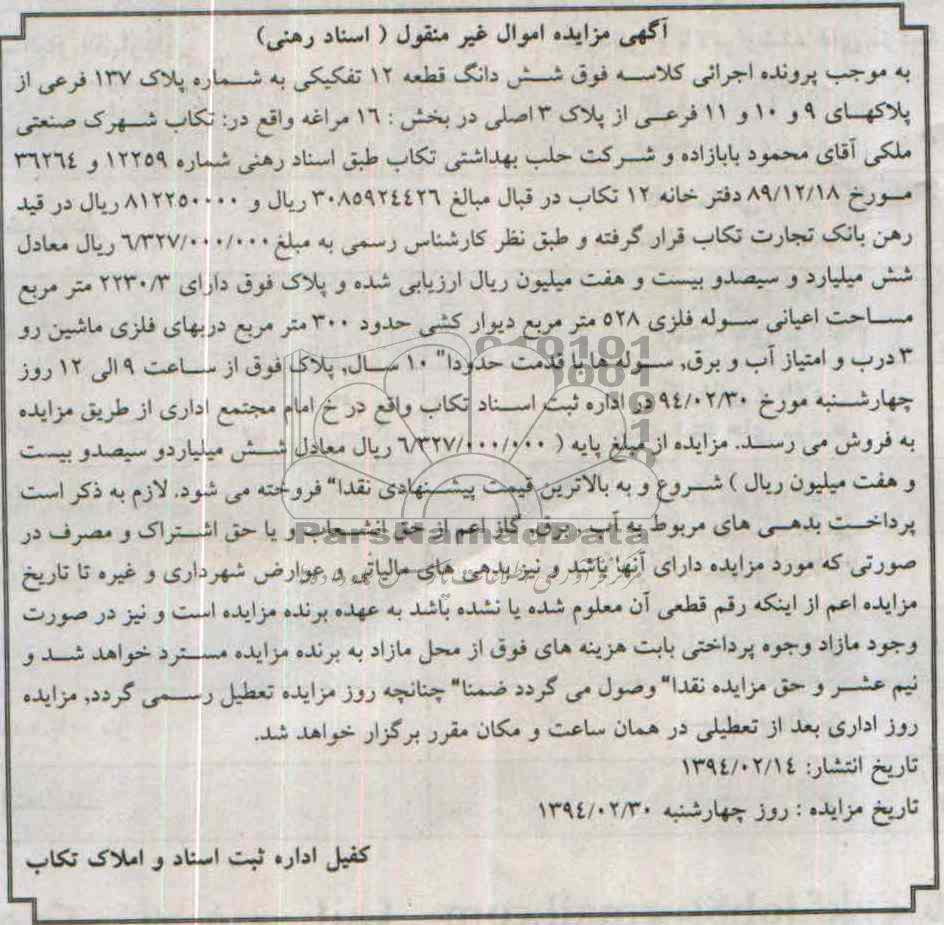 آگهی مزایده اموال غیر منقول ( اسناد رهنی)
به موجب پرونده اجرائی کلاسه فوق شش دانگ قطعه ۱۲ تفکیکی به شماره پلاک ۱۳۷ فرعی از
پلاکهای ۹ و ۱۰ و ۱۱ فرعی از پلاک ۳ اصلی در بخش : ۱۶ مراغه واقع در: تکاب شهرک صنعتی
ملکی آقای محمود بابازاده و شرکت حلب بهداشتی تکاب طبق اسناد رهنی شماره ۱۲۲۵۹ و ۳۶۲۶٤
مورخ ۸۹/۱۲/۱۸ دفتر خانه ۱۲ تکاب در قبال مبالغ ۳۰۸۵۹۲٤٤۲٦ ریال و ۸۱۲۲۵۰۰۰۰ ریال در قید
رهن بانک تجارت تکاب قرار گرفته و طبق نظر کارشناس رسمی به مبلغ ٦/۳۲۷/۰۰۰/۰۰۰ ریال معادل
شش میلیارد و سیصدو بیست و هفت میلیون ریال ارزیابی شده و پلاک فوق دارای ۲۲۳۰/۳ متر مربع
مساحت اعیانی سوله فلزی ۵۲۸ متر مربع دیوار کشی حدود ۳۰۰ متر مربع دربهای فلزی ماشین رو
۳ درب و امتیاز آب و برق, سوله ها با قدمت حدودا" ۱۰ سال, پلاک فوق از ساعت ۹ الی ۱۲ روز
چهارشنبه مورخ ۹٤/۰۲/۳۰ در اداره ثبت اسناد تکاب واقع در خ امام مجتمع اداری از طریق مزایده
به فروش می رسد. مزایده از مبلغ پایه ( ٦/۳۲۷/۰۰۰/۰۰۰ ریال معادل شش میلیاردو سیصدو بیست
و هفت میلیون ریال ) شروع و به بالاترین قیمت پیشنهادی نقدا" فروخته می شود. لازم به ذکر است
پرداخت بدهی های مربوط به آب , برق, گاز اعم از حق انشعاب و یا حق اشتراک و مصرف در
صورتی که مورد مزایده دارای آنها باشد و نیز بدهی های مالیاتی و عوارض شهرداری و غیره تا تاریخ
مزایده اعم از اینکه رقم قطعی آن معلوم شده یا نشده باشد به عهده برنده مزایده است و نیز در صورت
وجود مازاد وجوه پرداختی بابت هزینه های فوق از محل مازاد به برنده مزایده مسترد خواهد شد و
نیم عشر و حق مزایده نقدا" وصول می گردد ضمنا" چنانچه روز مزایده تعطیل رسمی گردد, مزایده
روز اداری بعد از تعطیلی در همان ساعت و مکان مقرر برگزار خواهد شد.
تاریخ انتشار: ۱۳۹٤/۰۲/۱٤
تاریخ مزایده : روز چهارشنبه ۱۳۹٤/۰۲/۳۰
کفیل اداره ثبت اسناد و املاک تکاب
ParsNamadData